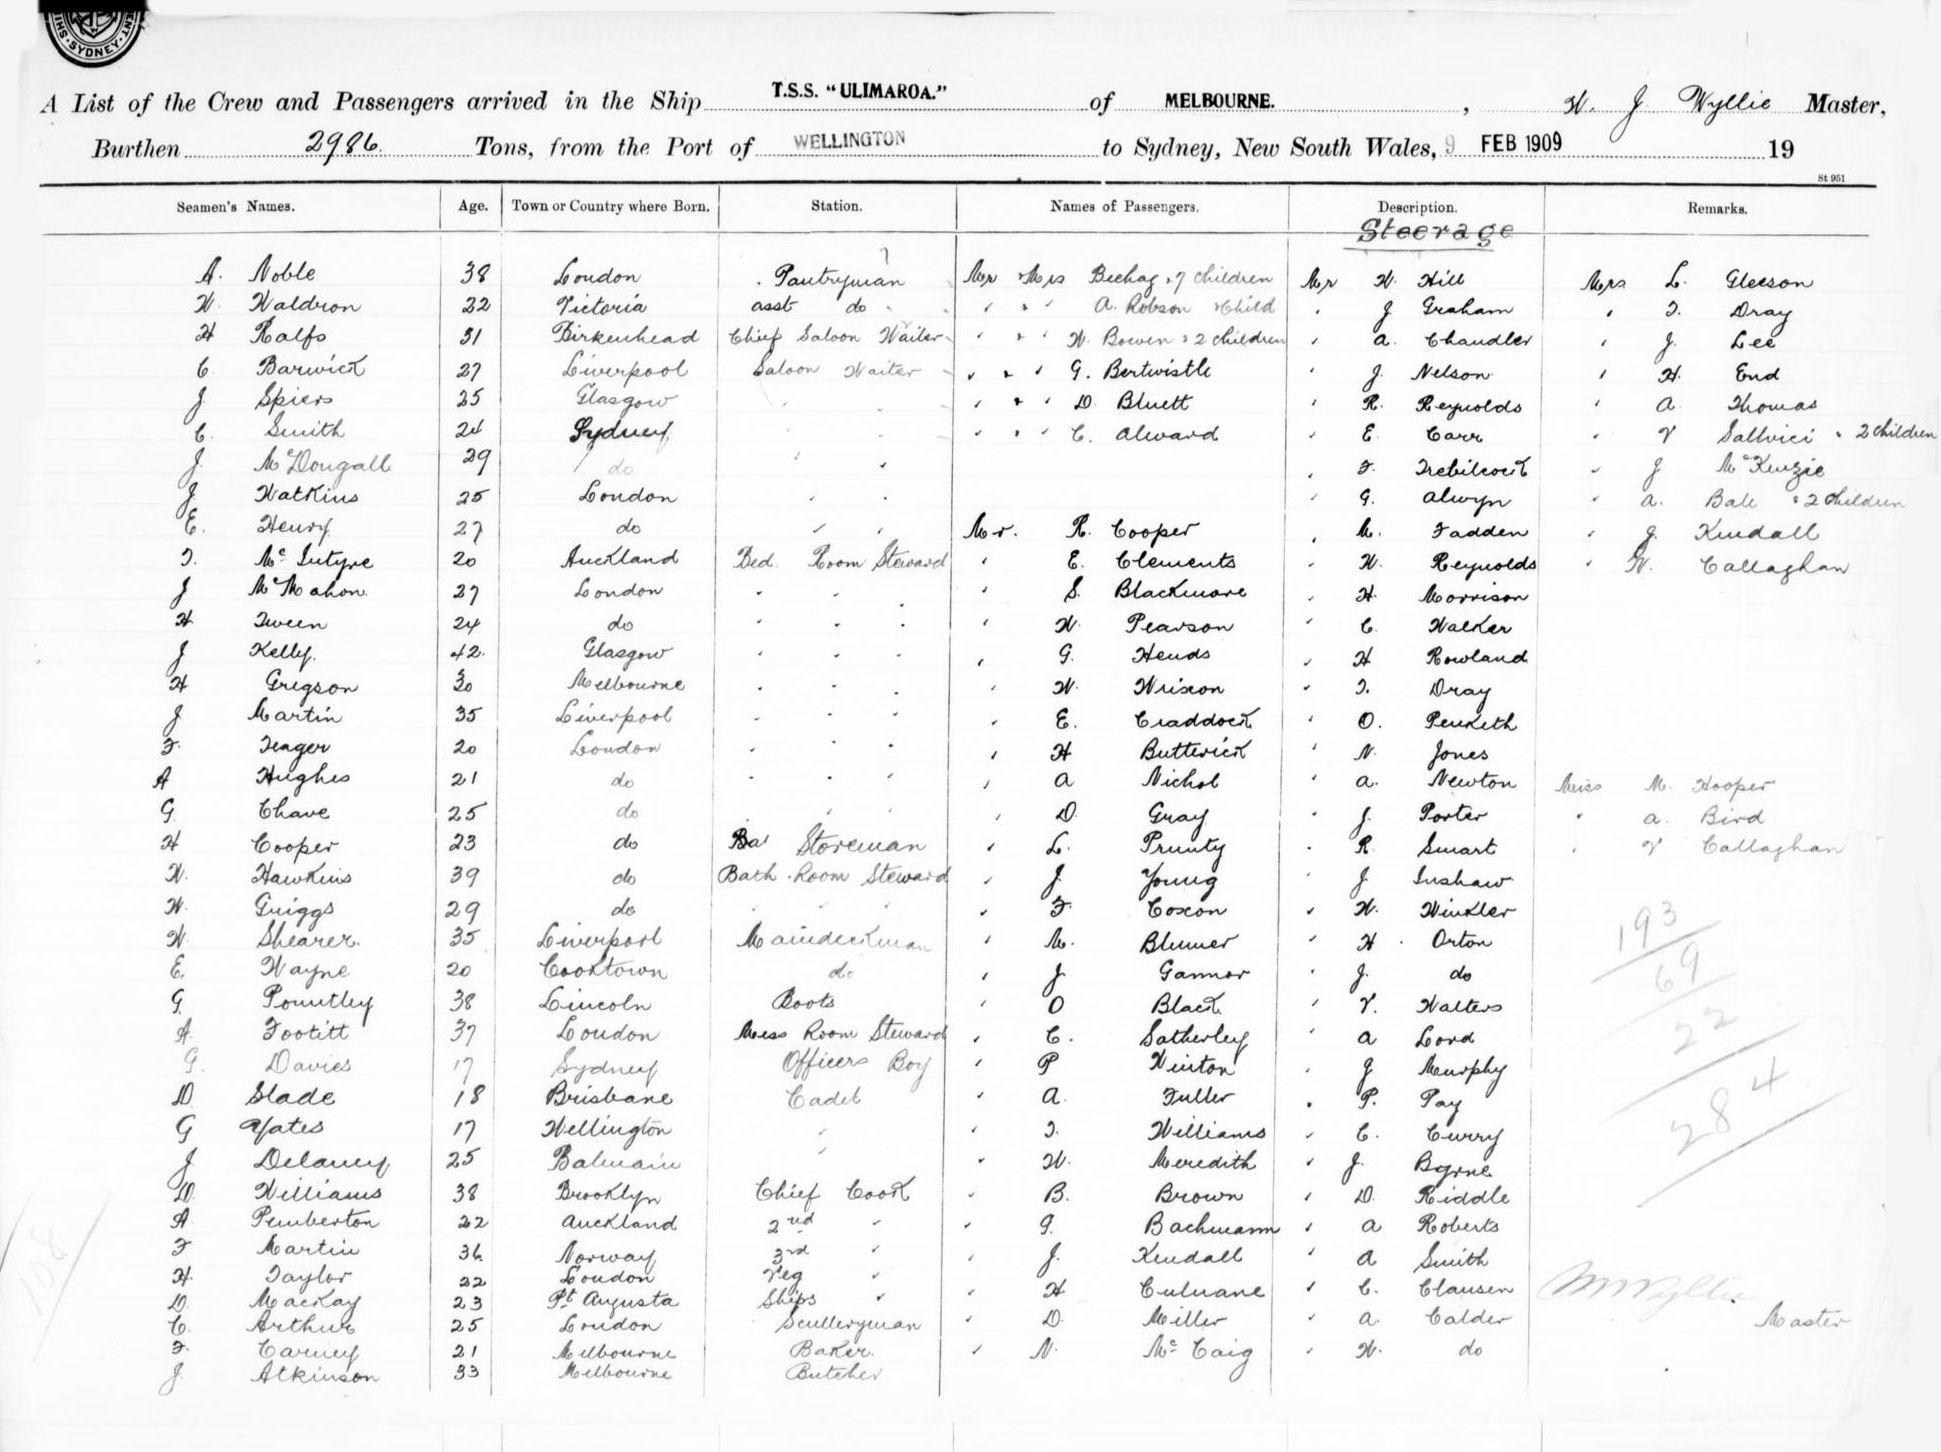 SYDNEY
A List of the Crew and Passengers arrived in the Ship T.S.S. "ULIMAROA." of MELBOURNE. , W. J Wyllie Master,
Burthen 2986 Tons, from the Port of WELLINGTON to Sydney, New South Wales, 9 FEB 1909 19
St 951
Seamen's Names. Age. Town or Country where Born. Station. Names of Passengers. Description. Remarks.
Steerage
A. Noble 38 London Pantryman Mr & Mrs Bechag & 7 Children Mr W. Hill Mrs L. Gleeson
W. Waldron 22 Victoria asst do " " " A. Robson & Child " J Graham " T. Dray
H Ralfs 31 Birkenhead Chief Saloon Waiter " " " W. Bowen & 2 children " A. Chandler " J. Lee
C. Barwick 27 Liverpool Saloon Waiter " " " G. Bertwistle " J. Nelson " H. End
J Spiers 25 Glasgow " " " " " D. Bluett " R. Reynolds " A. Thomas
C. Smith 24 Sydney " " " " " C. Alward " E. Carr " V Sallvici & 2 Children
J. McDougall 29 do " " " F. Trebilcock " J McKenzie
J. Watkins 25 London " " " G. Alwyn " A. Bale & 2 Children
E. Henry 27 do " " Mr. R. Cooper " M. Fadden " J. Kendall
T. McIntyre 20 Auckland Bed Room Steward " E. Clements " W. Reynolds " W. Callaghan
J McMahon 27 London " " " " S. Blackmore " H. Morrison
H Tween 24 do " " " " W. Pearson " C. Walker
J Kelly. 42 Glasgow " " " " G. Hends " H Rowland
H Gregson 30 Melbourne " " " " W. Wrixon " T. Dray
J Martin 35 Liverpool " " " " E. Craddock " O. Penketh
F. Teager 20 London " " " " H Butterick " N. Jones
A Hughes 21 do " " " " A Nichol " A. Newton Miss M. Hooper
G. Chave 25 do " " " " D. Gray " J. Porter " A. Bird
H Cooper 23 do Bar Storeman " L. Prunty " R. Smart " V Callaghan
W. Hawkins 39 do Bath Room Steward " J. Young " J Inshaw
W. Griggs 29 do " " " " F. Coxon " W. Winkler
W. Shearer. 35 Liverpool Maindeckman " M. Blumer " H. Orton
E. Wayne 20 Cooktown do " J. Gannor " J. do
G. Pountley 38 Lincoln Boots " O Black " V. Walters
A. Footitt 37 London Mess Room Steward " C. Satherley " A Lord
G. Davies 17 Sydney Officers Boy " P Winton " J Murphy
D. Slade 18 Brisbane Cadet " A. Fuller " P. Pay
G Yates 17 Wellington " " T. Williams " C. Curry
J Delaney 25 Balmain " " W. Meredith " J. Byrne
D. Williams 38 Brooklyn Chief Cook " B. Brown " D. Riddle
A. Pemberton 22 Auckland 2nd " " G. Bachmann " A Roberts
F Martin 36 Norway 3rd " " J. Kendall " A Smith
H. Taylor 22 London Veg " " H Culnane " C. Clausen
D. Mackay 23 Pt Augusta Ships " " D. Miller " A. Calder
C. Arthur 25 London Sculleryman " N. McCaig " W. do
F. Carney 21 Melbourne Baker.
J. Atkinson 33 Melbourne Butcher
193
69
22
284
108
W Wyllie
Master